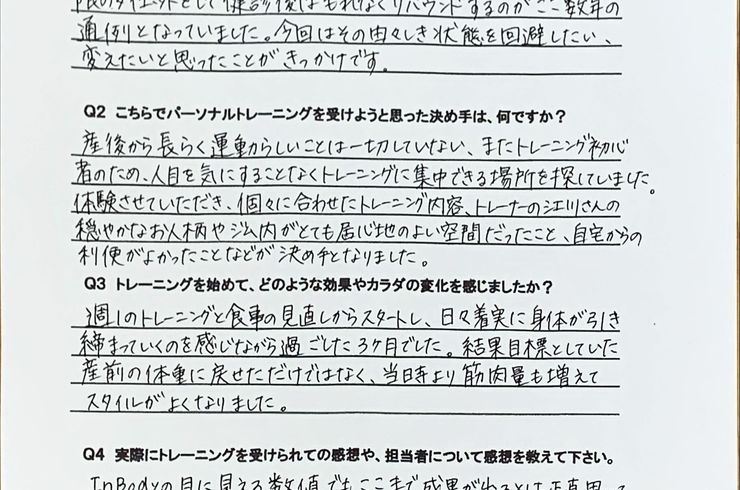 限のダイエットをして健診後はもれなくリバウンドするのがここ数年の
通例となっていました。今回はその由々しき状態を回避したい、
変えたいと思ったことがきっかけです。
Q2 こちらでパーソナルトレーニングを受けようと思った決め手は、何ですか?
産後から長らく運動らしいことは一切していない、またトレーニング初心
者のため、人目を気にすることなくトレーニングに集中できる場所を探していました。
体験させていただき、個々に合わせたトレーニング内容、トレーナーの江川さんの
穏やかなお人柄やジム内がとても居心地のよい空間だったこと、自宅からの
利便がよかったことなどが決め手となりました。
Q3 トレーニングを始めて、どのような効果やカラダの変化を感じましたか?
週1のトレーニングと食事の見直しからスタートし、日々着実に身体が引き
締まっていくのを感じながら過ごした3ケ月でした。結果目標としていた
産前の体重に戻せただけではなく、当日時より筋肉量も増えて
スタイルがよくなりました。
Q4 実際にトレーニングを受けられての感想や、担当者について感想を教えて下さい。
InBodyの目に見える数値でもここまで成果が出るとは正直思って